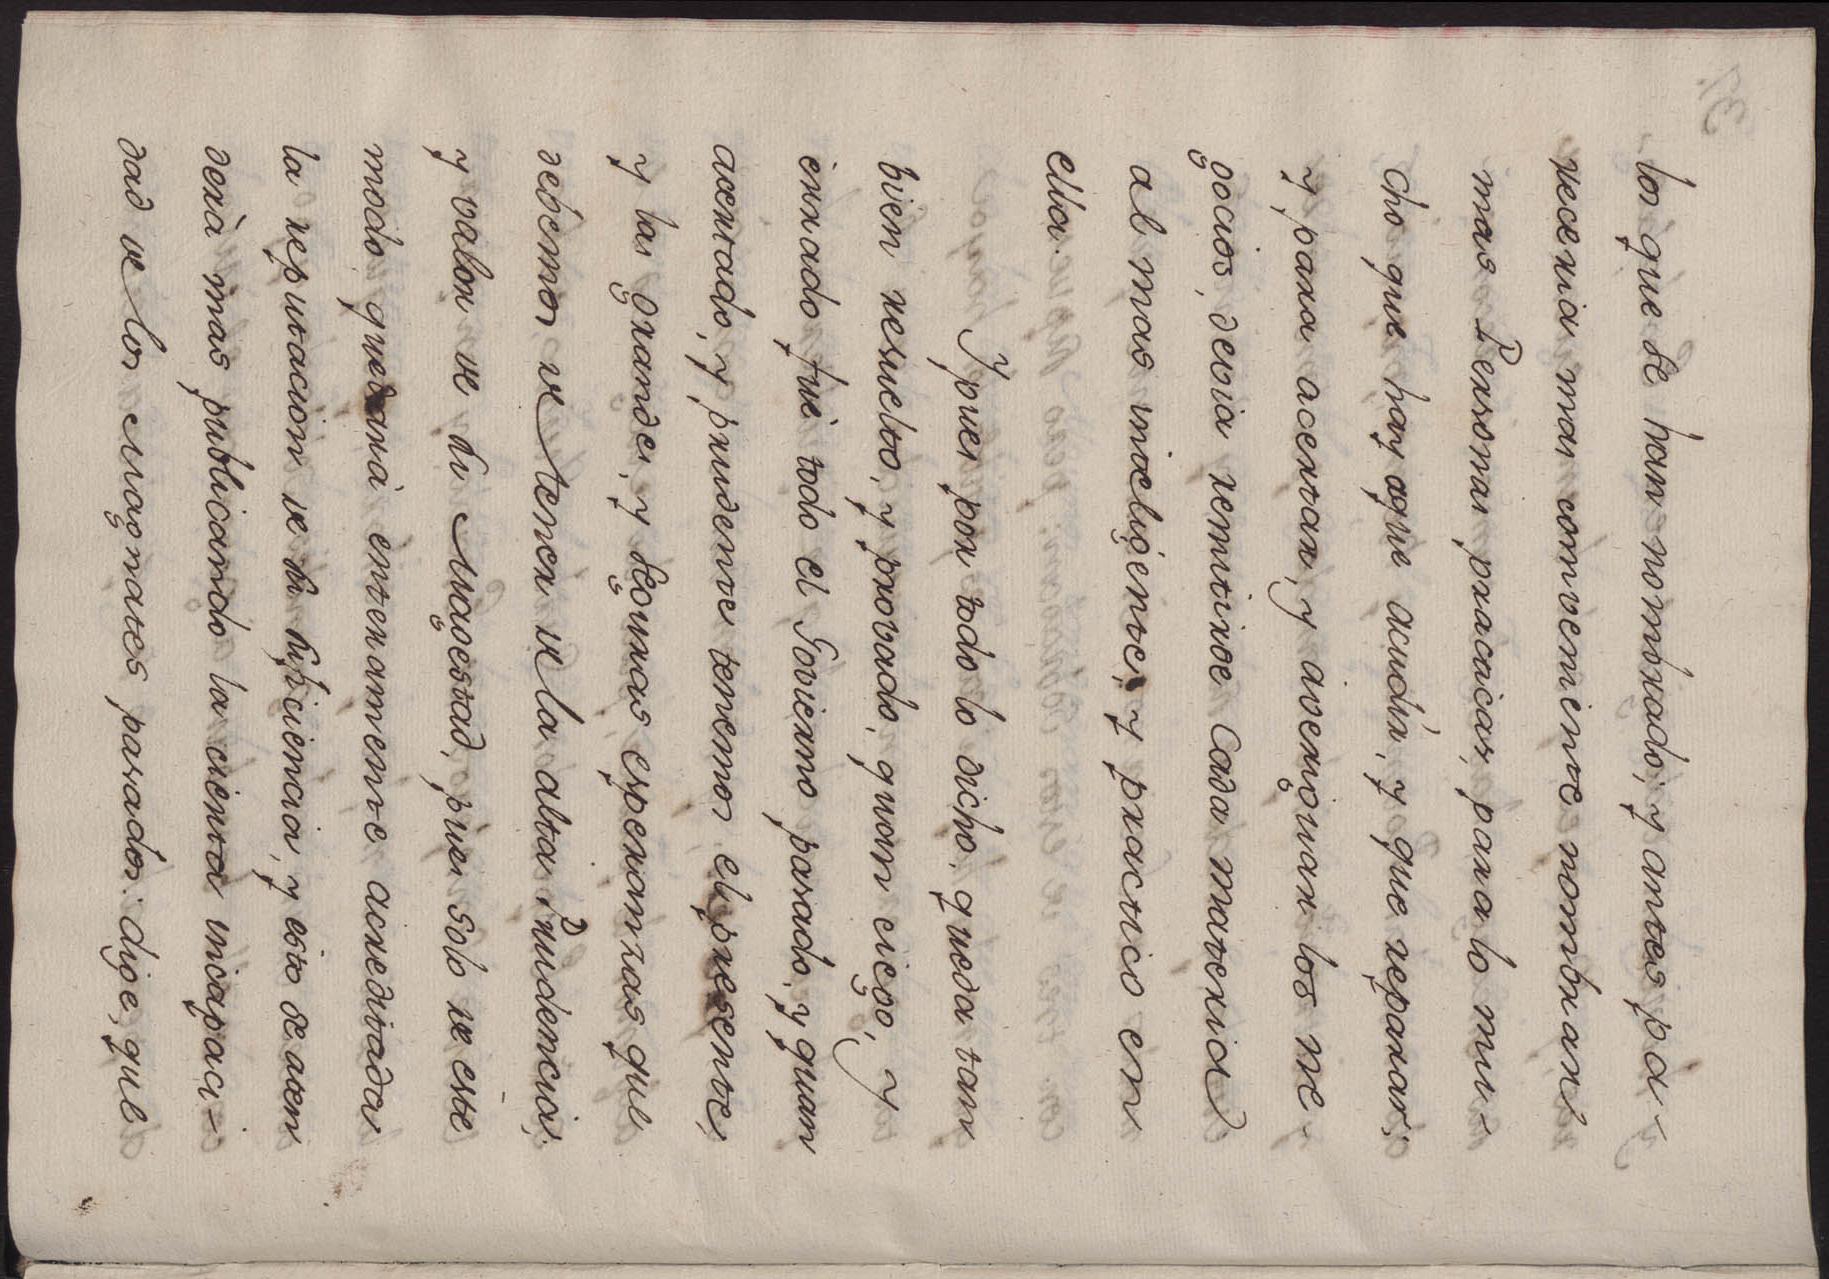 lo que se han nombrado; y antes pa-
receria mas conveniente nombrar
mas Personas practicas, para lo mu-
cho que hay aque acudir, y que reparar;
y para acertar, y averiguar los ne-
gocios, devia remitirse cada materia
al mas inteligente, y practico en
ella.
Y pues por todo lo dicho, queda tan
bien resuelto, y provado, quan ciego, y
errado fué todo el Govierno pasado, y quan
acertado, y prudente tenemos el presente,
y las grandes, y seguras esperanzas que
debemos de tener de la alta Prudencia,
y valor de su Magestad, pues solo de este
modo, quedará enteramente acreditada
la reputacion de su suficiencia, y esto se aten
derá mas publicando la cierta incapaci-
dad de los Magnates pasados: dige, que